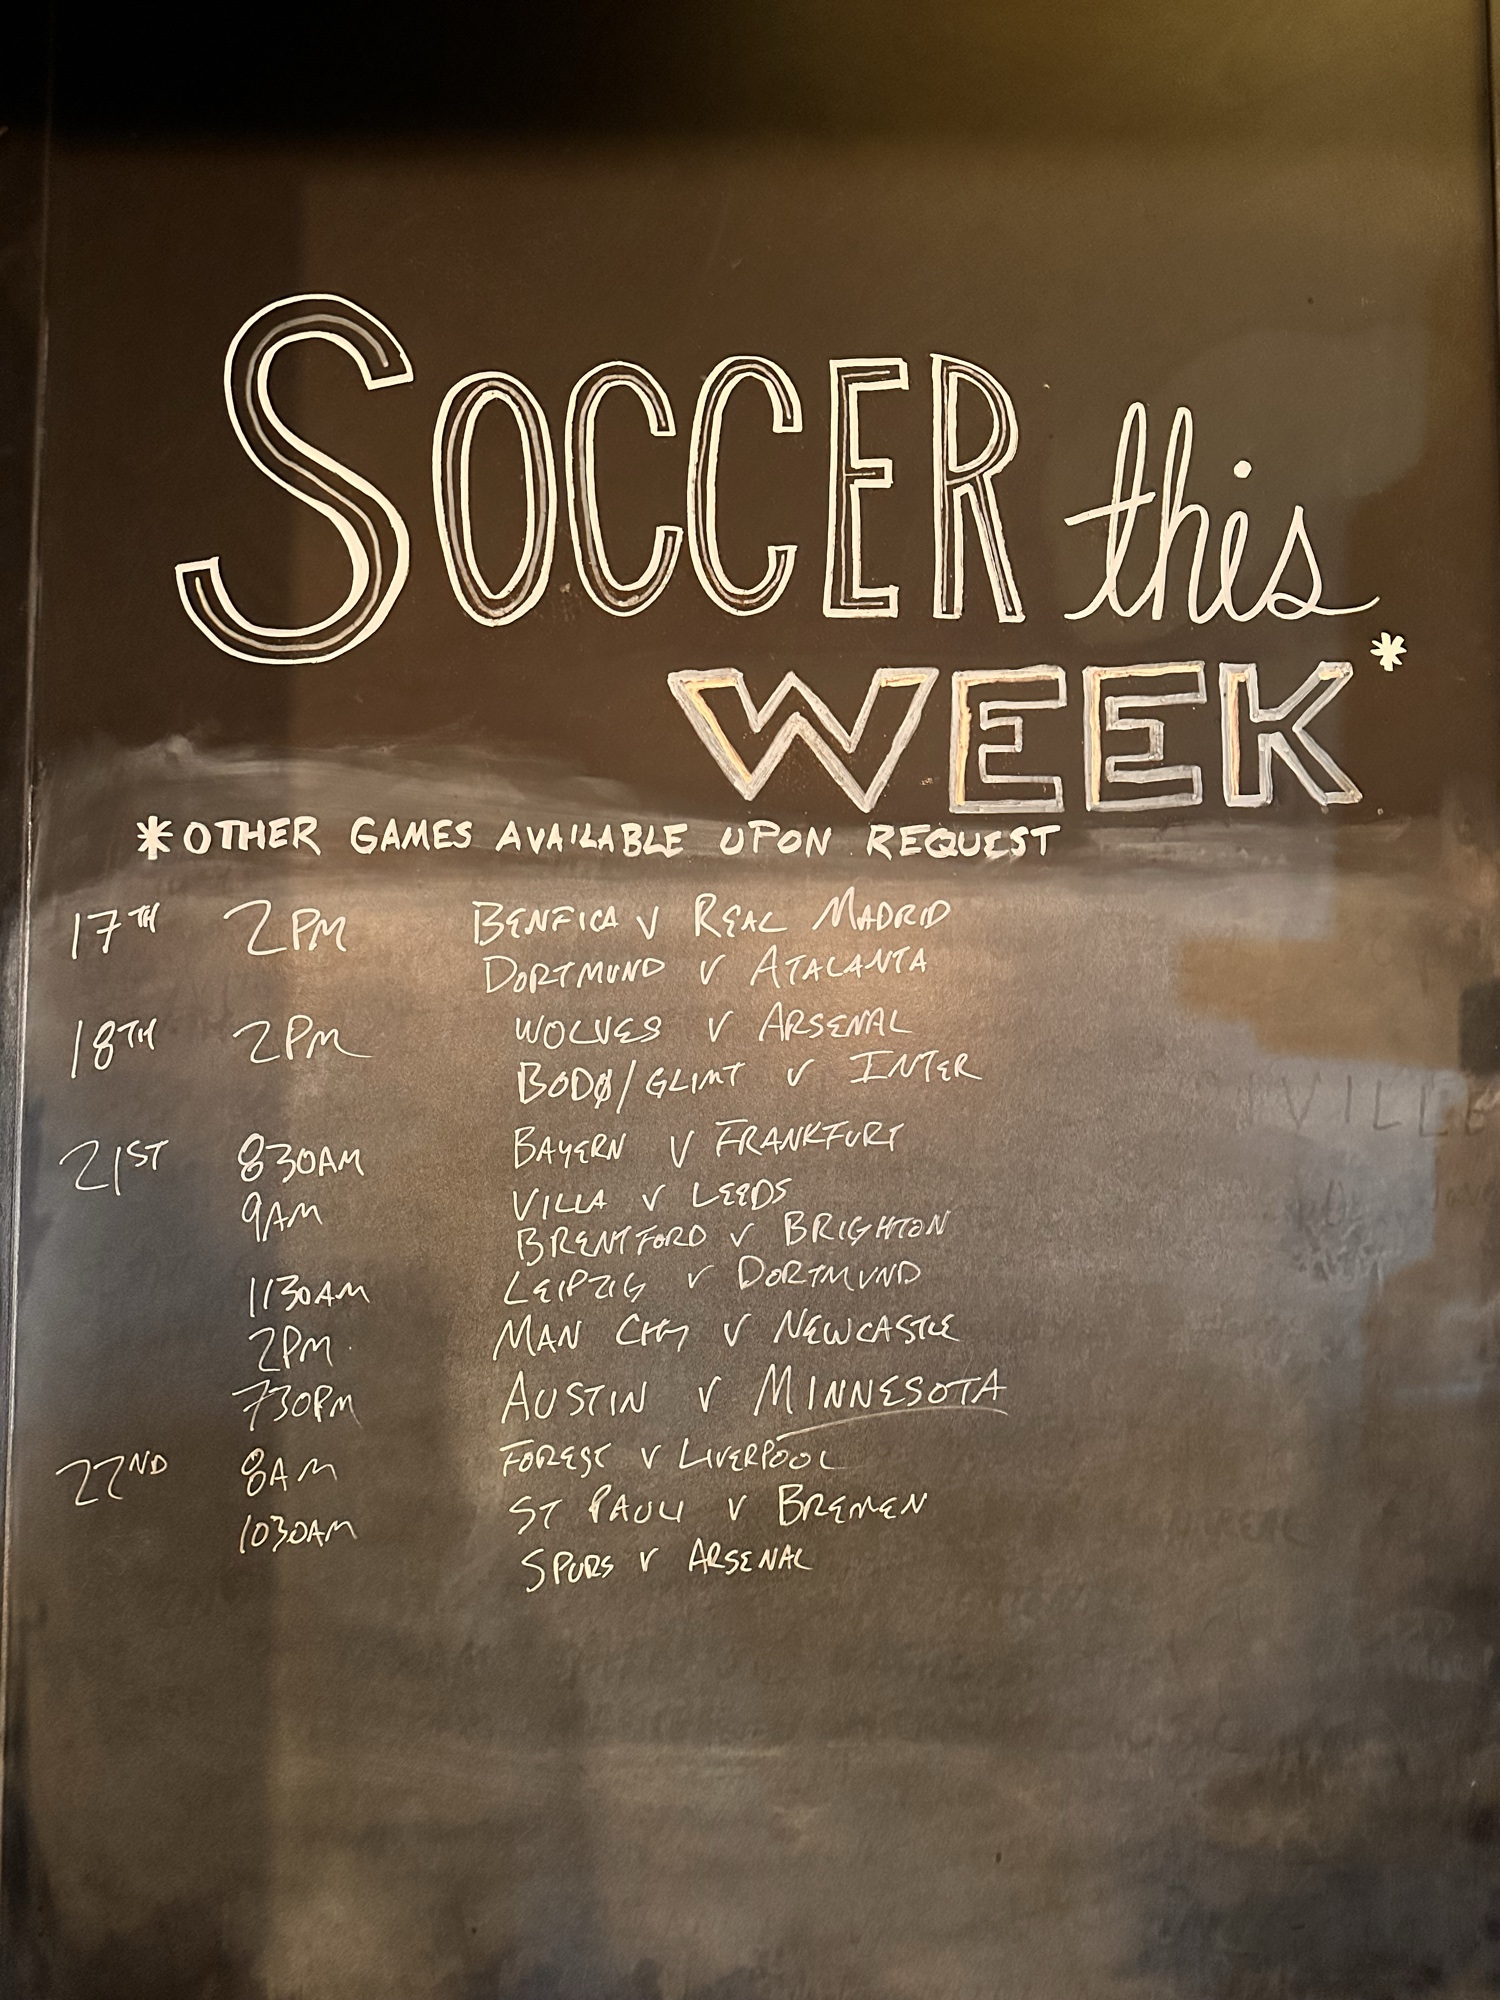 SOCCER this
WEEK*
*OTHER GAMES AVAILABLE UPON REQUEST
17TH 2PM BENFICA V REAL MADRID
DORTMUND V ATALANTA
18TH 2PM WOLVES V ARSENAL
BODØ/GLIMT V INTER
21ST 830AM BAYERN V FRANKFURT
9AM VILLA V LEEDS
BRENTFORD V BRIGHTON
1130AM LEIPZIG V DORTMUND
2PM MAN CITY V NEWCASTLE
730PM AUSTIN V MINNESOTA
22ND 8AM FOREST V LIVERPOOL
1030AM ST PAULI V BREMEN
SPURS V ARSENAL